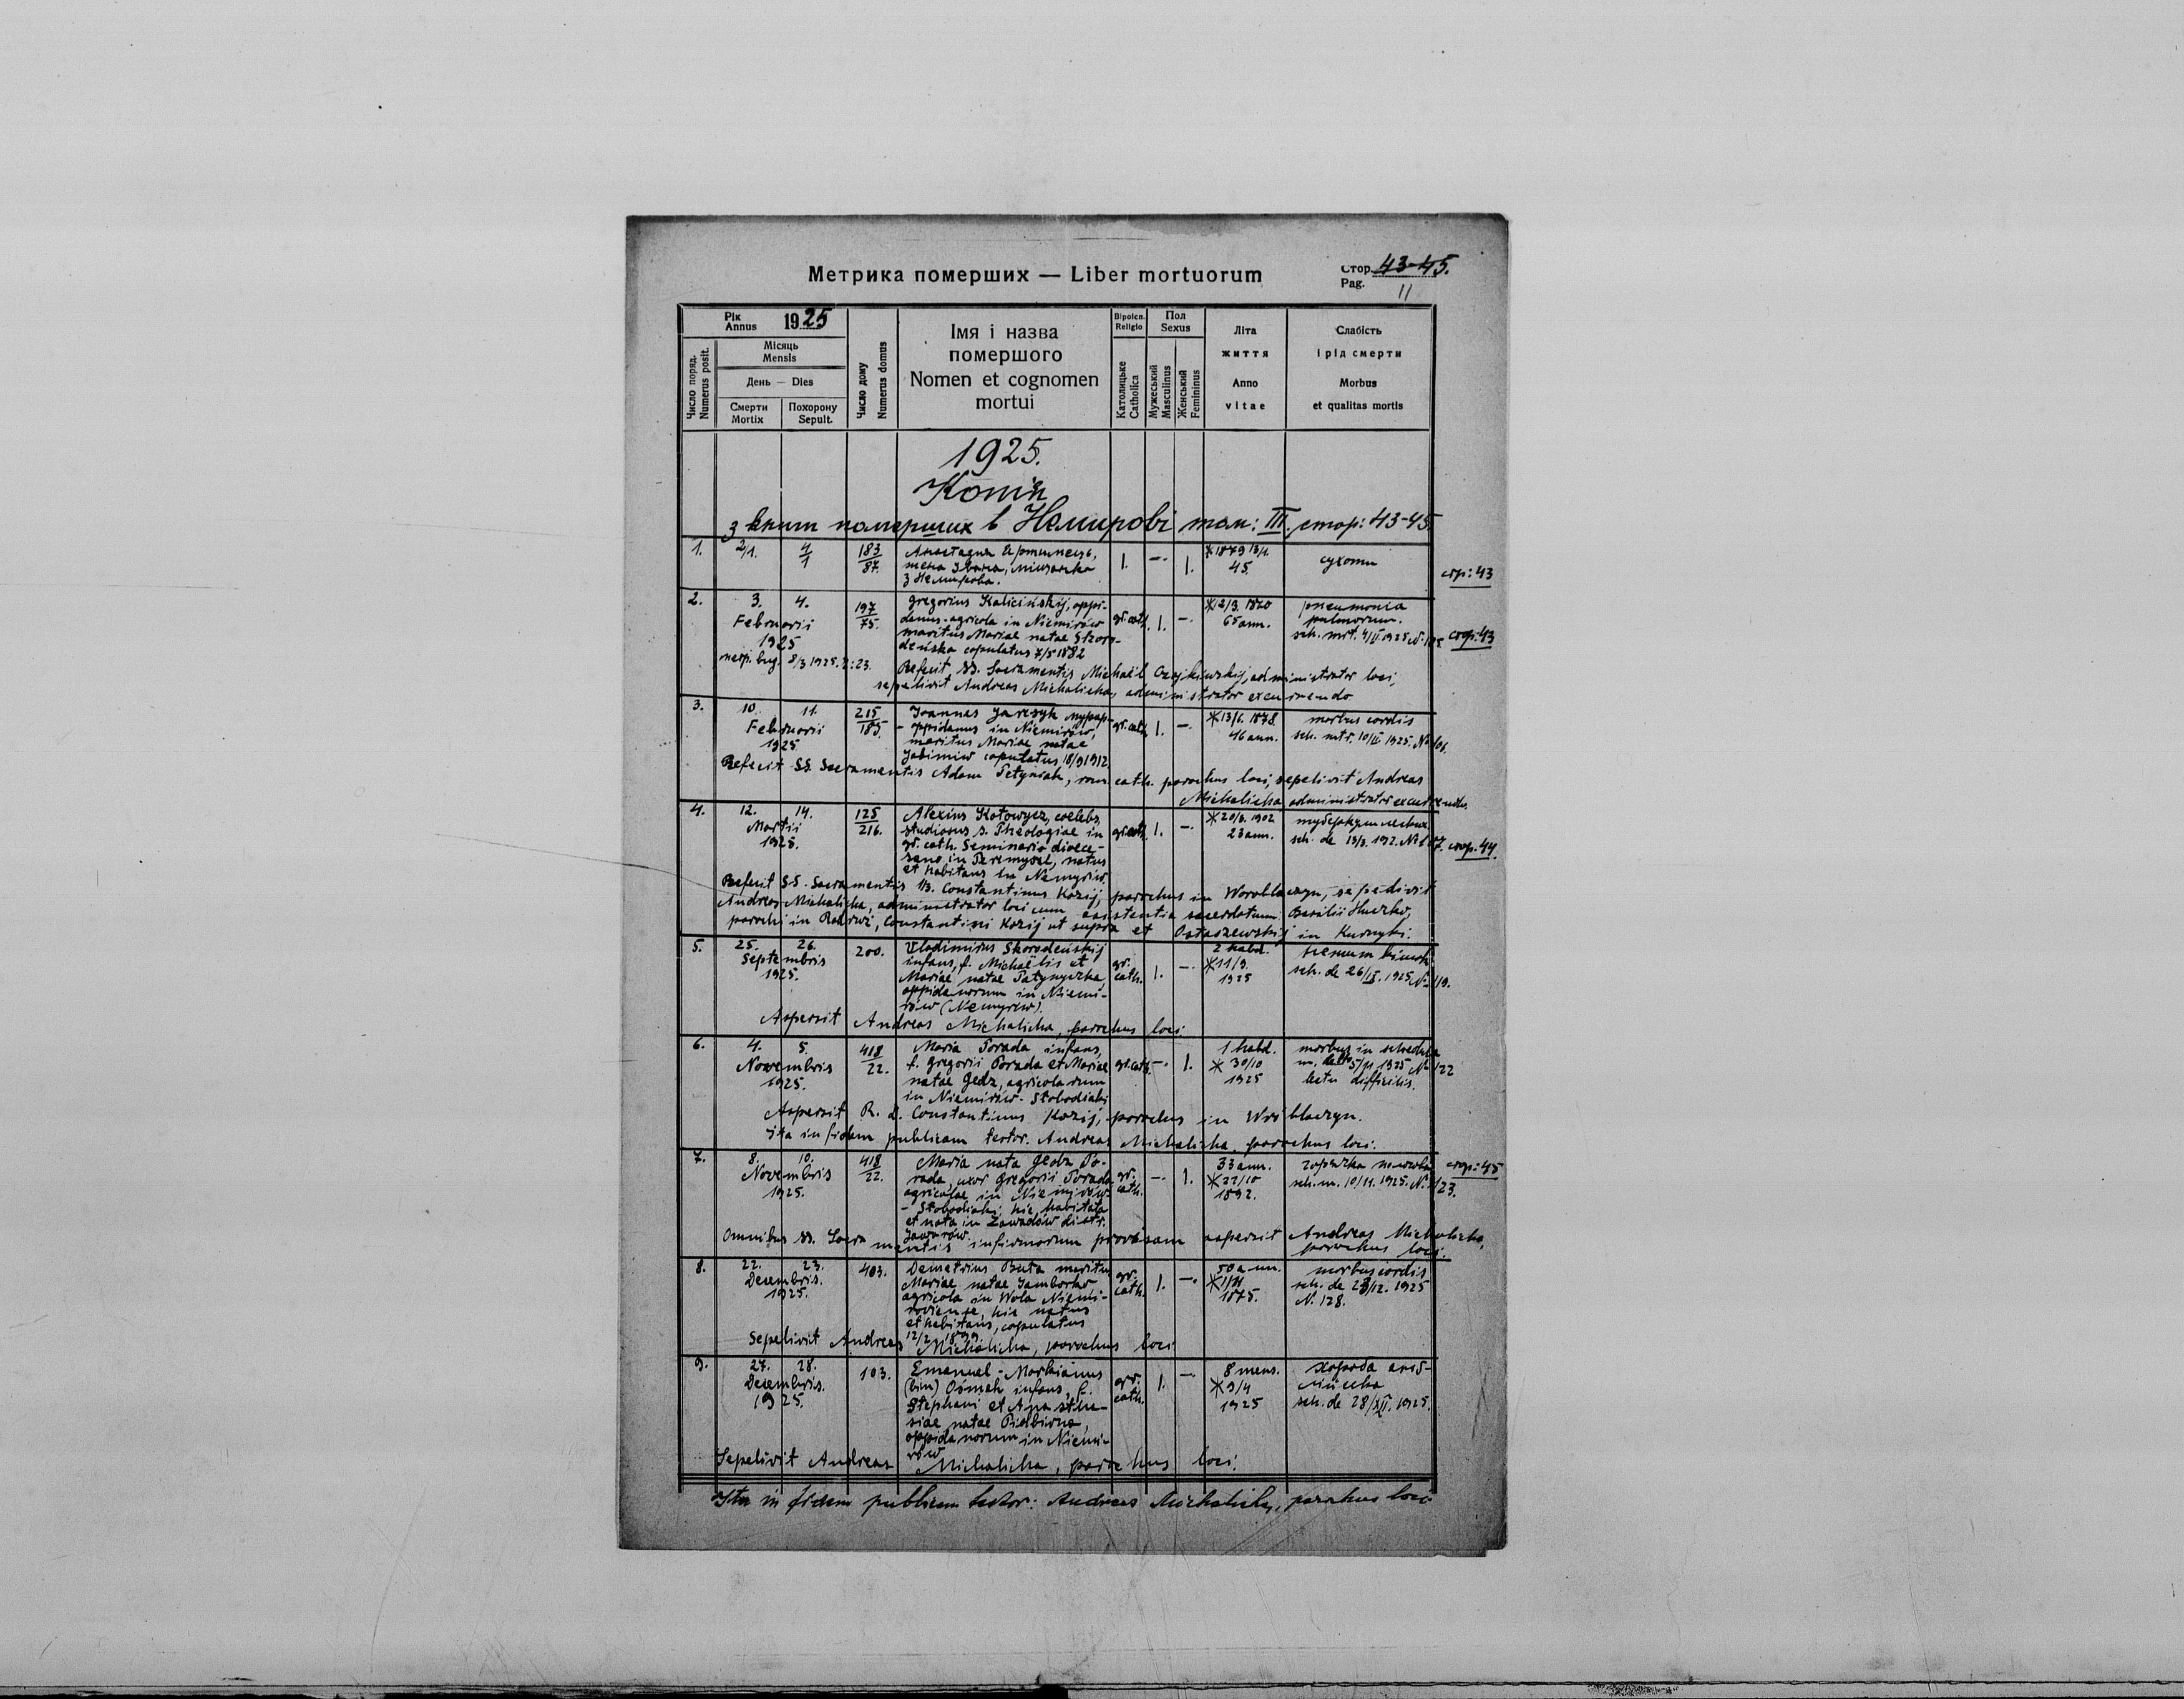 Метрика померших — Liber mortuorum
Стор. 43-45.
Pag. 11
Рік
Annus 1925
Місяць
Mensis
День — Dies
Смерти
Mortix
Похорону
Sepult.
Число поряд.
Numerus posit.
Число дому
Numerus domus
Імя і назва
помершого
Nomen et cognomen
mortui
Віроісп.
Religio
Католицьке
Catholica
Пол
Sexus
Мужеський
Masculinus
Женський
Femininus
Літа
життя
Anno
vitae
Слабість
і рід смерти
Morbus
et qualitas mortis
1925.
з книг померших в Немирові том: III. стор: 43-45.
1. 2/1. 4/1 183/87.
жена Івана, міщанка
з Немирова.
1. —· 1.
*1879 13/1.
45.
сухоти
стр: 43
2. 3. 4.
Februarii
1925
197/75.
Gregorius Kalicińskij, oppi-
danus-agricola in Niemirów
maritus Mariae natae Skoro-
deńska copulatus 7/5 1882
gr. cath. 1. —·
*12/3. 1860
65 ann.
pneumonia
pulmorum.
sch. mrt. 4/II 1925 N. 105
стор. 43
8/3 1925. Z: 23.
Refecit SS. Sacramentis Michaël administrator loci,
sepelivit Andreas Michalicha, administrator excurrendo
3. 10. 11.
Februarii
1925
215/185.
Joannes Jarczyk
oppidanus in Niemirów,
maritus Mariae natae
Jabimiw copulatus 18/9 1912.
gr. cath. 1. —·
*13/6. 1878.
46 ann.
morbus cordis
sch. mtr. 10/II. 1925. № 106.
Refecit SS. Sacramentis Adam Petyniak, rom. cath. parochus loci, sepelivit Andreas
Michalicha administrator excurrendo.
4. 12. 14.
Martii
1925.
125/216.
Alexius Kotowycz, coelebs,
studiosus s. Theologiae in
gr. cath. Seminario dioece-
sano in Peremysel, natus
et habitans in Nemyriw
gr. cath. 1. —·
*20/3. 1902
23 ann.
туберкули
sch. de 13/3. 192. № 107. стор. 44.
Refecit S.S. Sacramentis Constantinus Kozij, parochus in Woroblaczyn, sepelivit
Andreas Michalicha, administrator loci cum asistentia sacerdotum: Basilii Huczko,
parochi in Radruż, Constantini Kozij ut supra et Ostaszewskij in Kurnyki.
5. 25. 26.
Septembris
1925.
200.
Vladimirus Skorodeńskij
infans, f. Michaëlis et
Mariae natae Patynyczka
oppidanorum in Niemi-
rów (Nemyriw).
gr.
cath. 1. —·
2 hebd.
*11/9.
1925
sch. de 26/IX. 1925 № 119.
Aspersit Andreas Michalicha, parochus loci.
6. 4. 5.
Novembris
1925.
418/22.
Maria Porada infans,
f. Gregorii Porada et Mariae
natae Gedz, agricolarum
in Niemirów-Słobodiaki
gr. cath. —· 1.
1 hebd.
* 30/10
1925
morbus in schedula
m. dtto 5/11 1925 № 122
lectu difficilis.
Aspersit R. d. Constantinus Kozij, parochus in Wróblaczyn.
Ita in fidem publicam testor. Andreas Michalicha, parochus loci.
7. 8. 10.
Novembris
1925.
418/22.
Maria nata Gedz Po-
rada, uxor Gregorii Porada
agricolae in Niemirów-
-Słobodiaki, hic habitata
et nata in Zawadów distr.
Jaworów.
gr.
cath. —· 1.
33 ann.
*22/10
1892.
горячка
sch. m. 10/11. 1925. № 123.
стор: 45
Omnibus SS. Sacramentis infirmorum provisam aspersit Andreas Michalicha,
parochus loci.
8. 22. 23.
Decembris.
1925.
403.
Demetrius Buta maritus
Mariae natae Jamborko
agricola in Wola Niemi-
roviense, hic natus
et habitans, copulatus
12/2 1899
gr.
cath. 1. —·
50 ann.
*1/11
1875.
morbus cordis
sch. de 23/12. 1925
N. 128.
Sepelivit Andreas Michalicha, parochus loci
9. 27. 28.
Decembris.
1925.
103.
Emanuel-Markianus
(bin) Ośmak infans, f.
Stephani et Anasta-
siae natae Pidbirna,
oppidanorum in Niemi-
rów
gr.
cath. 1. —·
8 mens.
*9/4
1925
sch. de 28/XII. 1925.
Sepelivit Andreas Michalicha, parochus loci.
Ita in fidem publicam testor: Andreas Michalicha, parochus loci